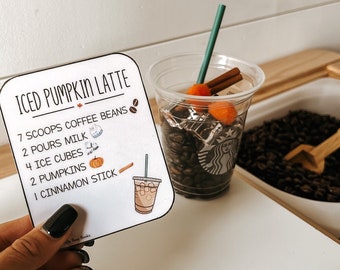 ICED PUMPKIN LATTE
7 SCOOPS COFFEE BEANS
2 POURS MILK
4 ICE CUBES
2 PUMPKINS
1 CINNAMON STICK